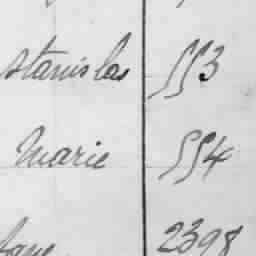 Stanislas 553
Marie 554
2398